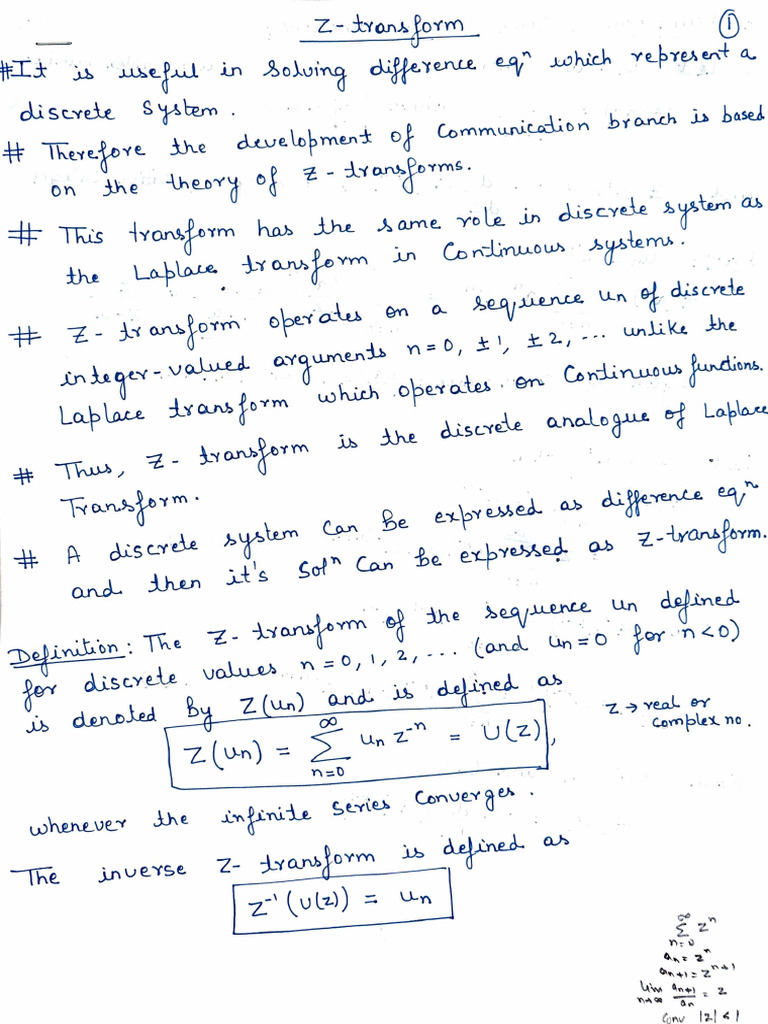 Z-transform ①
#It is useful in solving difference eqⁿ which represent a
discrete system.
# Therefore the development of Communication branch is based
on the theory of Z-transforms.
# This transform has the same role in discrete system as
the Laplace transform in Continuous systems.
# Z-transform operates on a sequence un of discrete
integer-valued arguments n=0, ±1, ±2, ... unlike the
Laplace transform which operates on Continuous functions.
# Thus, Z-transform is the discrete analogue of Laplace
Transform.
# A discrete system can be expressed as difference eqⁿ
and then it's Solⁿ Can be expressed as Z-transform.
Definition: The Z-transform of the sequence un defined
for discrete values n=0, 1, 2, ... (and un=0 for n<0)
is denoted by Z(un) and is defined as
Z(un) = ∑_{n=0}^{∞} un z⁻ⁿ = U(z),
z → real or
complex no.
whenever the infinite series Converges.
The inverse Z-transform is defined as
Z⁻¹(U(z)) = un
∑_{n=0}^{∞} zⁿ
an = zⁿ
an+1 = zⁿ⁺¹
lim_{n→∞} an+1/an = z
Conv |z|<1